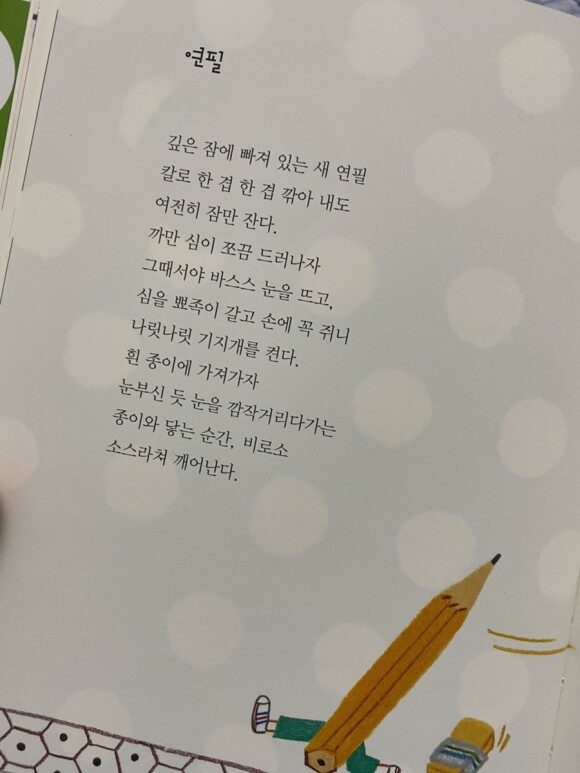 연필
깊은 잠에 빠져 있는 새 연필
칼로 한 겹 한 겹 깎아 내도
여전히 잠만 잔다.
까만 심이 쪼끔 드러나자
그때서야 바스스 눈을 뜨고,
심을 뾰족이 갈고 손에 꼭 쥐니
나릿나릿 기지개를 켠다.
흰 종이에 가져가자
눈부신 듯 눈을 깜작거리다가는
종이와 닿는 순간, 비로소
소스라쳐 깨어난다.